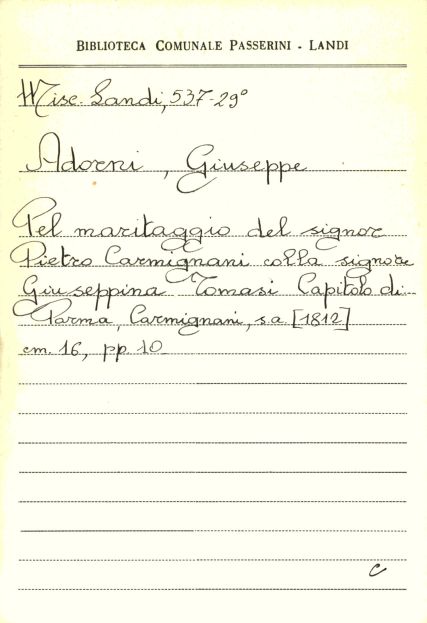 BIBLIOTECA COMUNALE PASSERINI - LANDI
Misc. Landi, 537-29°
Adorni, Giuseppe
Pel maritaggio del signor
Pietro Carmignani colla signora
Giuseppina Tomasi Capitolo di...
Parma, Carmignani, s.a. [1812]
cm. 16, pp. 10
C